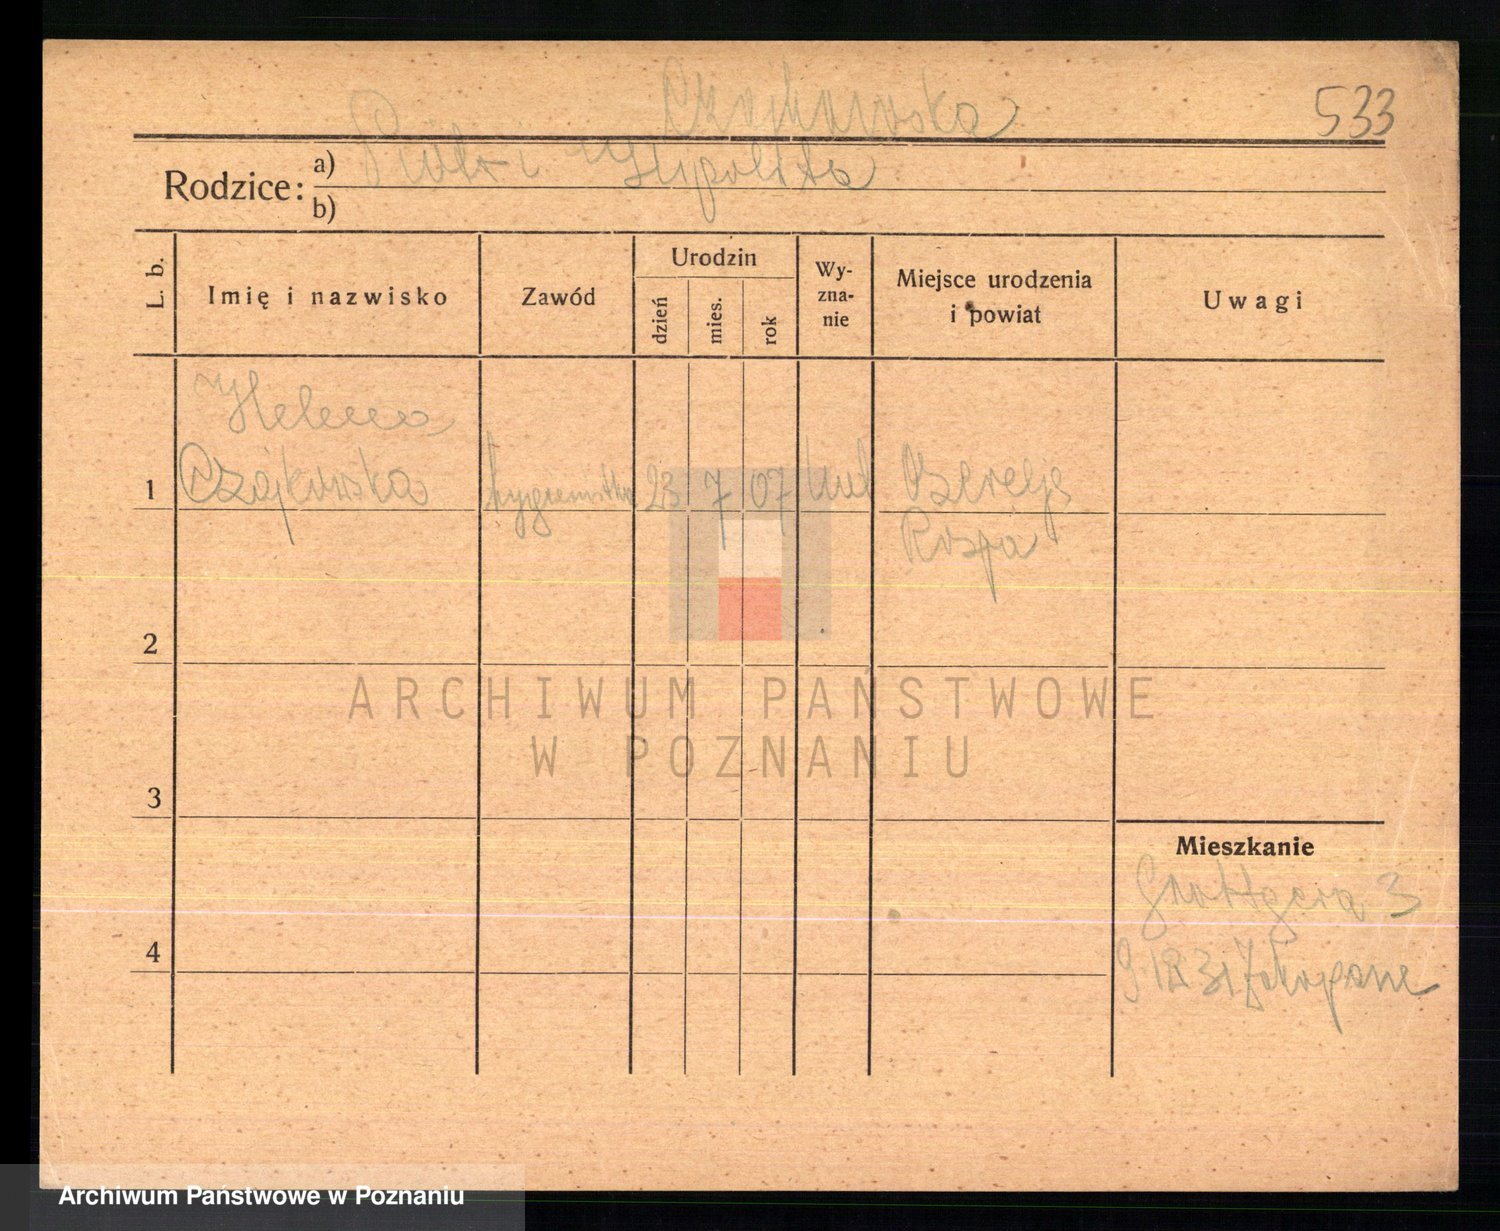 Czajkowska
533
Rodzice:
a) Piotr i Hipolita
b)
L. b.
Imię i nazwisko
Zawód
Urodzin
dzień
mies.
rok
Wy-
zna-
nie
Miejsce urodzenia
i powiat
Uwagi
Helena
1 Czajkowska hygienistka 23 7 07
Rosja
2
ARCHIWUM PAŃSTWOWE
W POZNANIU
3
Mieszkanie
Grottgera 3
4
9 12 31 Zakopane
Archiwum Państwowe w Poznaniu